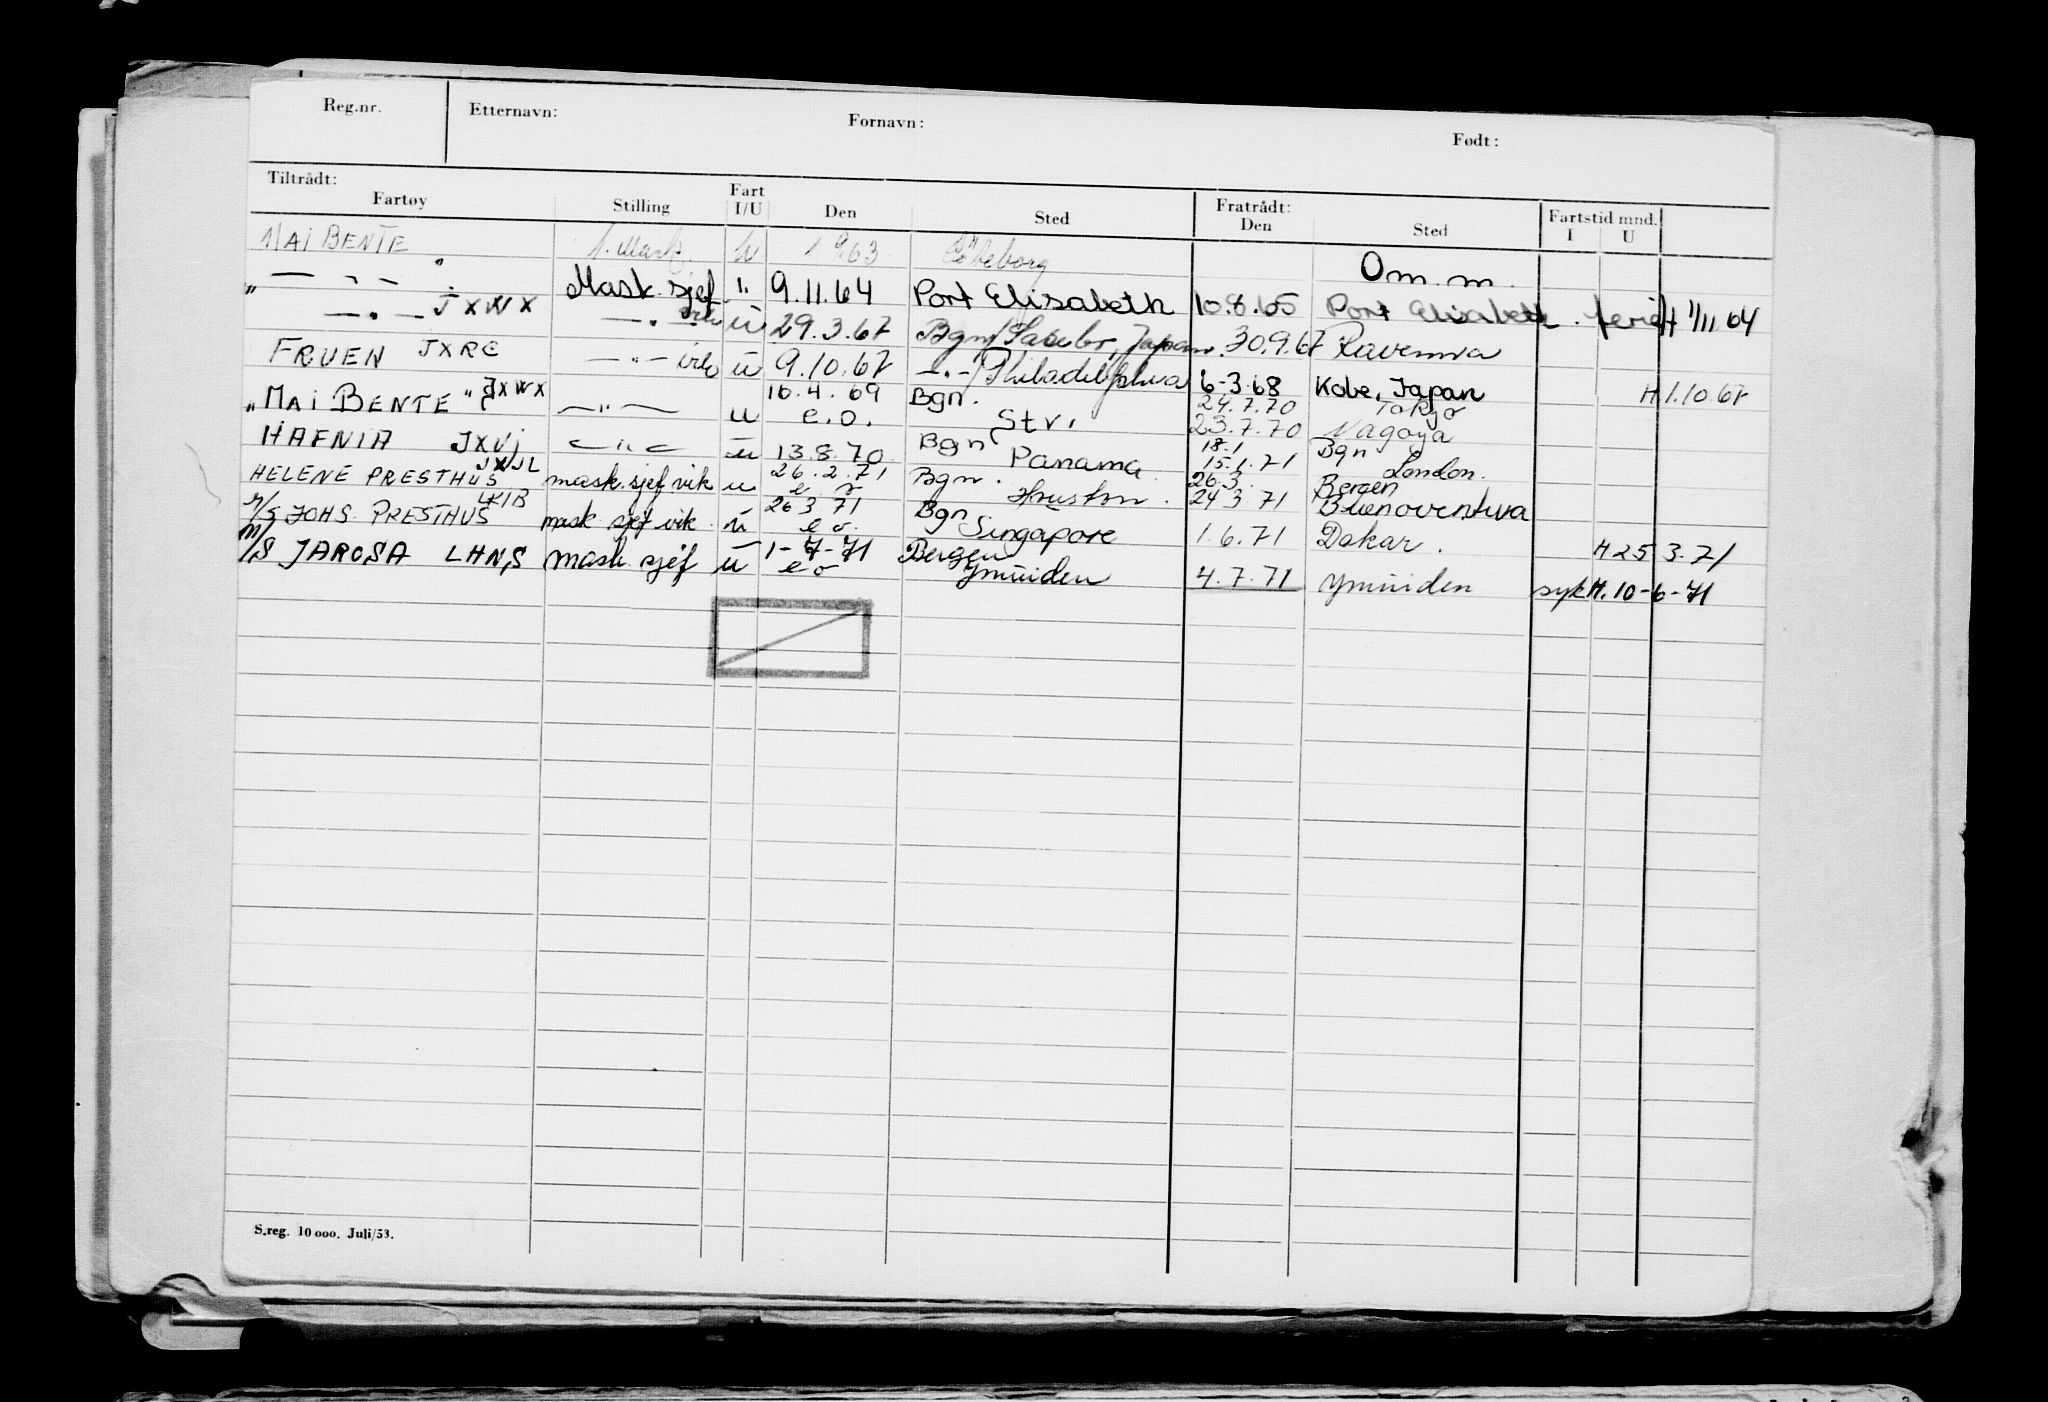 Reg.nr. Etternavn: Fornavn: Født:
Tiltrådt: Fratrådt: Fartstid mnd.
Fartøy Stilling Fart I/U Den Sted Den Sted I U
MAI BENTE 1. Mask. U 1963 Göteborg Om.m.
" — " — " Mask. sjef " 9.11.64 Port Elisabeth 10.8.65 Port Elisabeth. ferie H 1/11 64
— " — JXWX — " — vik u 29.3.67 Bgn/ Japan. 30.9.67 Ravenna
FRUEN JXRE — " — vik u 9.10.67 — " —/Philadelphia 6-3.68 Kobe, Japan H 1.10.67
" MAI BENTE " JXWX — " — u 16.4.69 e.o. Bgn. Stv. 24.7.70 23.7.70 Tokyo Nagoya
HAFNIA JXVJ — " — u 13.8.70 Bgn Panama 18.1 15.1.71 Bgn London.
HELENE PRESTHUS JXJL mask. sjef vik u 26.2.71 e o Bgn. Houston. 26.3. 24.3.71 Bergen Buenoventura
M/S JOHS. PRESTHUS LKIB mask sjef vik. u 26 3 71 e o. Bgn Singapore 1.6.71 Dakar. H 25 3.71
M/S JAROSA LHNS mask. sjef u 1-7-71 e o Bergen Ymuiden 4.7.71 Ymuiden syk H. 10-6-71
S.reg. 10 000. Juli/53.